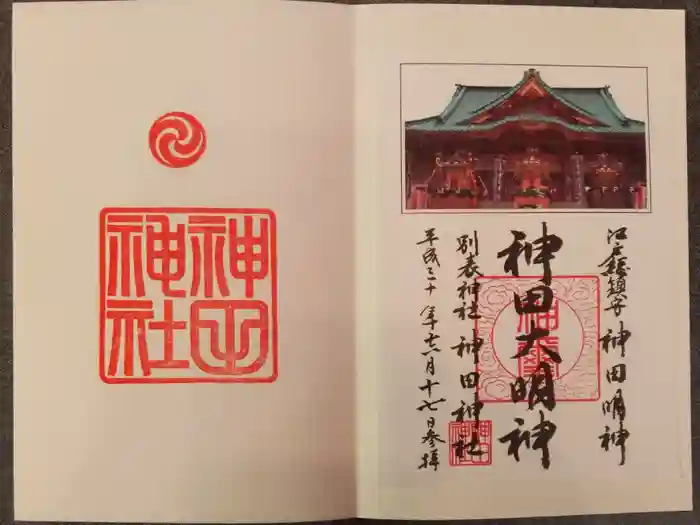 江戸総鎮守 神田明神
神田大明神
別表神社 神田神社
平成三十年十一月十七日参拝
神田
神社